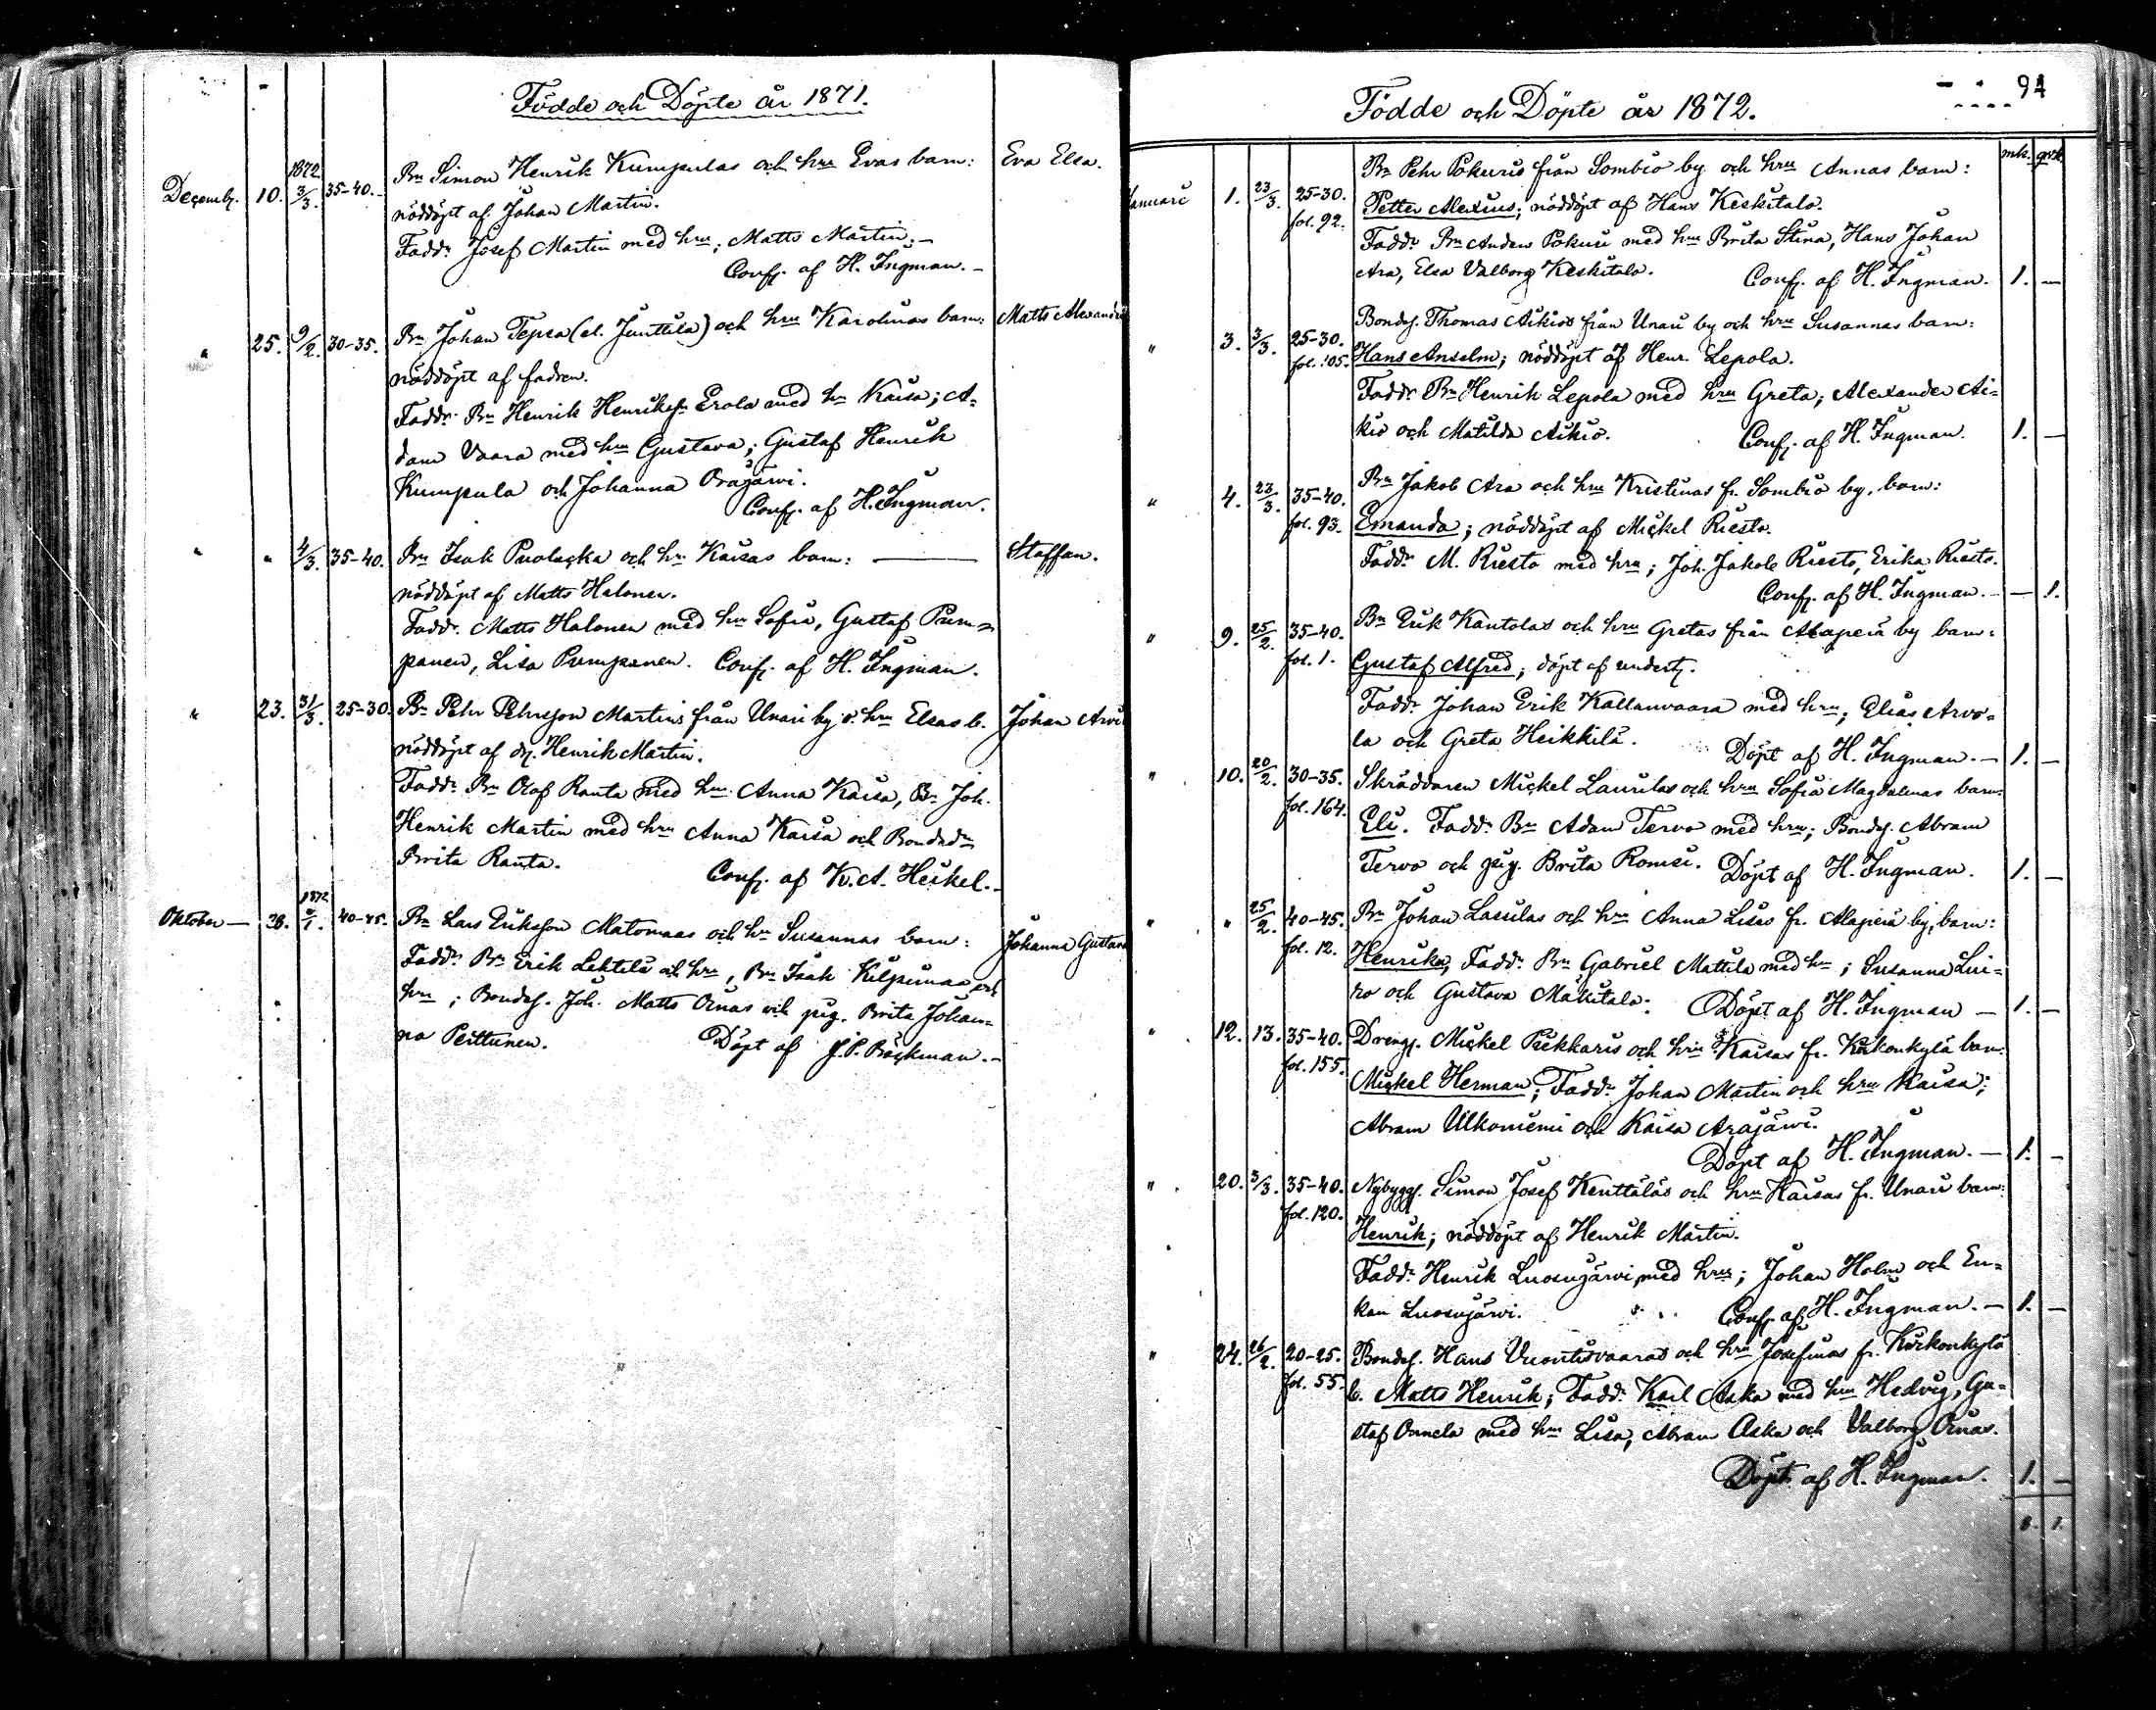 Födde och Döpte år 1871.
1872
Decemb. 10. 3/3. 35-40. Bn Simon Henrik Kumpulas och hru Evas barn: Eva Elsa.
nöddöpt af Johan Martin.
Faddr Josef Martin med hru; Matts Martin.-
Conf. af H. Ingman.-
" 25. 9/2. 30-35. Bn Johan Tepsa (el. Junttila) och hru Karolinas barn: Matts Alexander
nöddöpt af fadren.
Faddr Bn Henrik Henriksſn Erola med hru Kaisa; A-
dam Vaara med hru Gustava; Gustaf Henrik
Kumpula och Johanna Orajärvi.
Conf. af H. Ingman.
" " 4/3. 35-40. Bn Isak Puolacka och hru Kaisas barn: — Staffan.
nöddöpt af Matts Halonen.
Faddr. Matts Halonen med hru Sofia, Gustaf Pum-
panen, Lisa Pumpanen. Conf. af H. Ingman.
" 23. 31/3. 25-30. Bn Pehr Pehrsson Martins från Unari by o. hru Elsas b. Johan Arvi
nöddöpt af Henrik Martin.
Faddr Bn Olof Ranta med hru Anna Kaisa, Bn Joh.
Henrik Martin med hru Anna Kaisa och Bonded.
Brita Ranta. Conf. af K. A. Heikel.-
1872
Oktober — 28. /1. 40-45. Bn Lars Eriksson Matomaas och hru Susannas barn: Johanna Gustava
Faddr Bn Erik Lehtelä och hru, Bn Isak Kilpimaa och
hru; Bondes. Joh. Matts Ornas och pig. Brita Johan-
na Peittunen. Döpt af J. P. Bäckman.-
94
Födde och Döpte år 1872.
mk. p.
Januari 1. 23/3. 25-30. Bn Pehr Pokuris från Sombio by och hru Annas barn:
fol. 92. Petter Alexius; nöddöpt af Hans Keskitalo.
Faddr Bn Anders Pokuri med hru Brita Stina, Hans Johan
Ara, Elsa Valborg Keskitalo. Conf. af H. Ingman. 1. —
" 3. 3/3. 25-30. Bondes. Thomas Aikios från Unari by och hru Susannas barn:
fol. 105. Hans Anselm; nöddöpt af Henr. Lepola.
Faddr Bn Henrik Lepola med hru Greta; Alexander Ai-
kio och Matilda Aikio. Conf. af H. Ingman. 1. —
" 4. 23/3. 35-40. Bn Jakob Ara och hru Kristinas fr. Sombio by, barn:
fol. 93. Emanda; nöddöpt af Mickel Riesto.
Faddr M. Riesto med hru; Joh. Jakob Riesto, Erika Riesto.
Conf. af H. Ingman. — 1.
" 9. 25/2. 35-40. Bn Erik Kantolas och hru Gretas från Alapeiä by barn:
fol. 1. Gustaf Alfred; döpt af undert.
Faddr Johan Erik Kallanvaara med hru; Elias Arvo-
la och Greta Heikkilä. Döpt af H. Ingman.— 1. —
" 10. 20/2. 30-35. Skräddaren Mickel Laurilas och hru Sofia Magdalenas barn:
fol. 164. Eli. Faddr Bn Adam Tervo med hru; Bondes. Abram
Tervo och pig. Brita Romsi. Döpt af H. Ingman. 1. —
" " 25/2. 40-45. Bn Johan Lassilas och hru Anna Lisas fr. Alapeiä by, barn:
fol. 12. Henrika, Faddr Bn Gabriel Mattila med hru; Susanna Lui-
ro och Gustava Mäkitalo. Döpt af H. Ingman — 1. —
" 12. 13. 35-40. Dreng. Mickel Pükkaris och hru Kaisas fr. Kirkonkylä barn:
fol. 155. Mickel Herman; Faddr Johan Martin och hru Kaisa;
Abram Ulkoniemi och Kaisa Arajärvi.
Döpt af H. Ingman.— 1. —
" 20. 3/3. 35-40. Nybygg. Simon Josef Kenttäläs och hru Kaisas fr. Unari barn:
fol. 120. Henrik; nöddöpt af Henrik Martin.
Faddr Henrik Luosujärvi med hru; Johan Holm och En-
kan Luosujärvi. Conf. af H. Ingman.— 1. —
" 24. 26/2. 20-25. Bondes. Hans Vuontisvaaras och hru Josefinas fr. Kirkonkylä
fol. 55. b. Matts Henrik; Faddr Karl Aska med hru Hedvig, Gu-
staf Onnela med hru Lisa, Abram Aska och Valborg Ornas.
Döpt af H. Ingman. 1. —
8. 1.